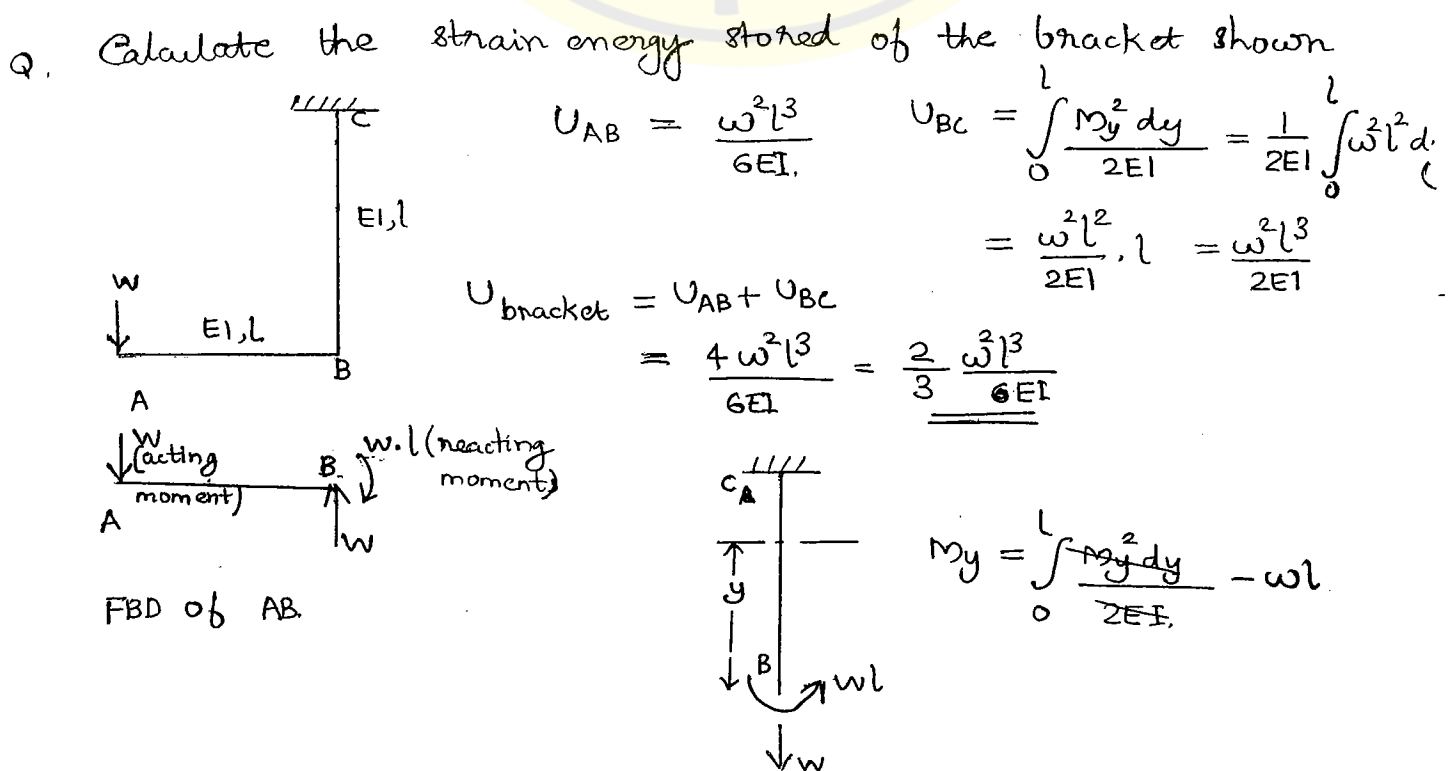 Q. Calculate the strain energy stored of the bracket shown
C
EI,l
W
EI,l
A
B
U_AB = ω²l³/6EI.
U_BC = ∫₀^l My² dy/2EI = 1/2EI ∫₀^l ω²l² d
= ω²l²/2EI . l = ω²l³/2EI
U bracket = U_AB + U_BC
= 4ω²l³/6EI = 2/3 ω²l³/EI
W (acting moment)
A
B
W.l (reacting moment)
W
FBD of AB.
C
y
B
wl
W
My = ∫₀^l My² dy/2EI. - ωl